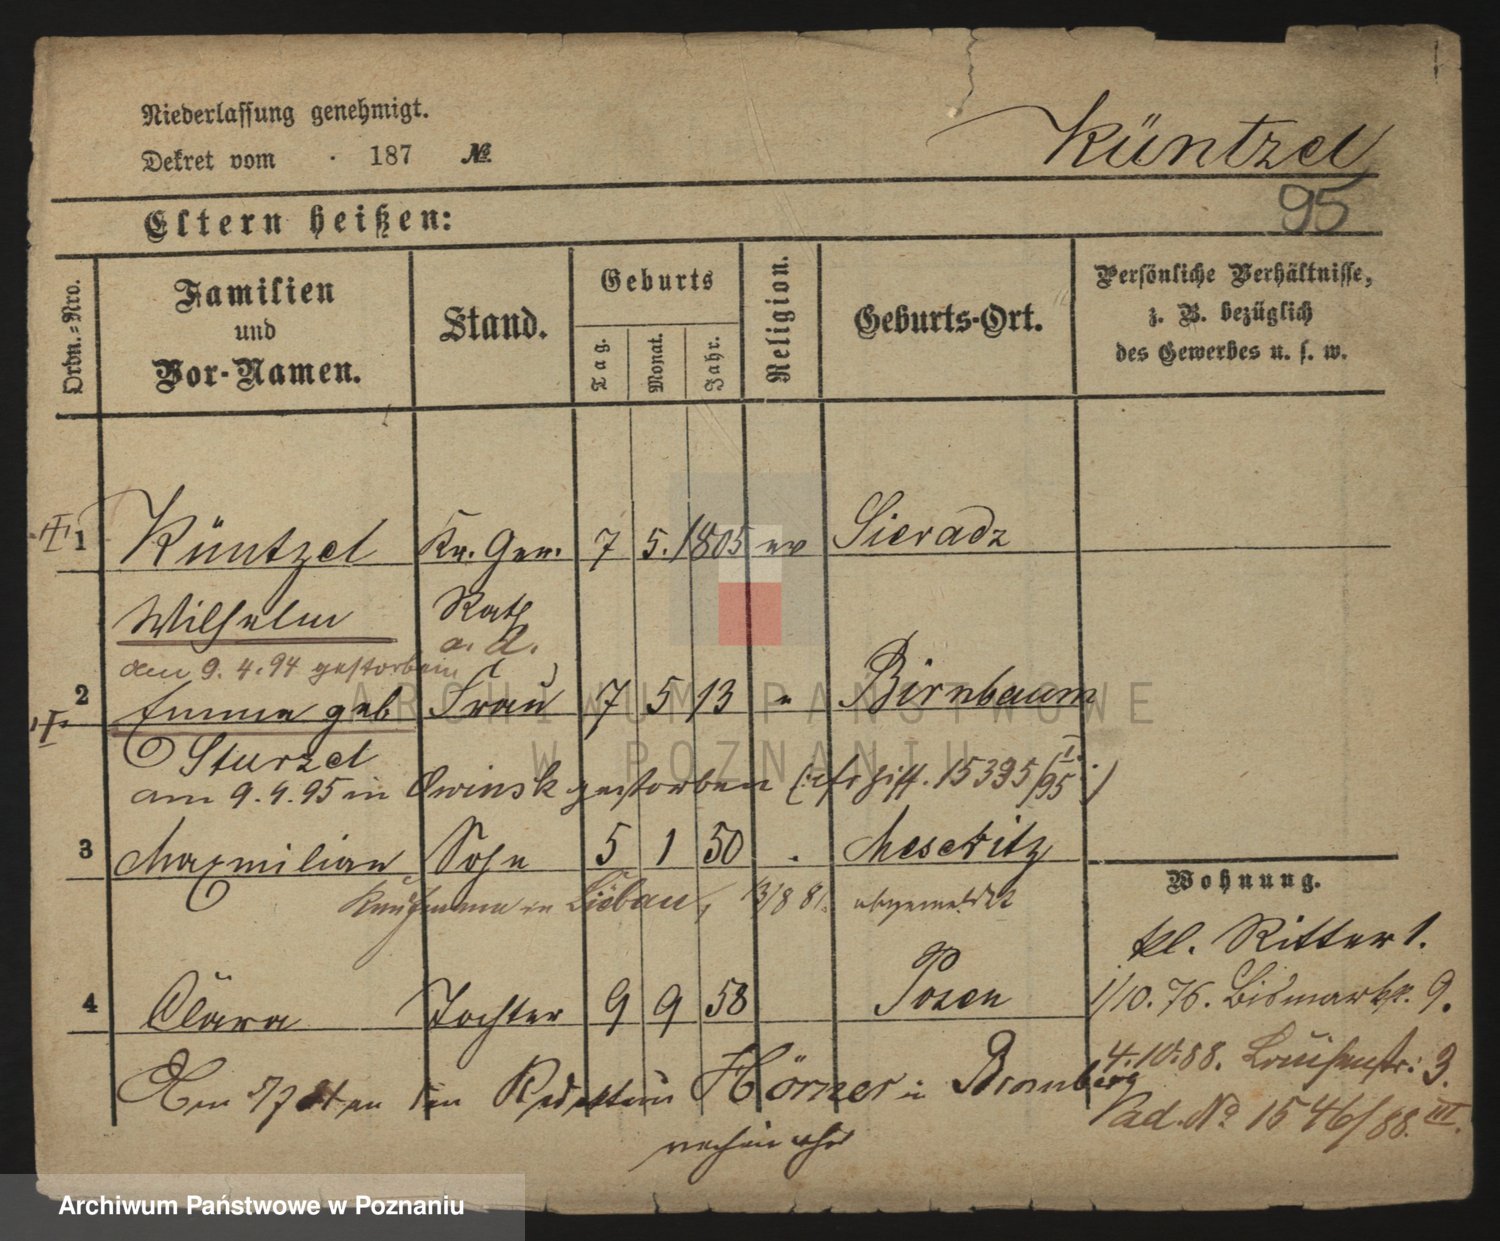 Niederlassung genehmigt.
Dekret vom . 187 №
Küntzel
95
Eltern heißen:
Ordn.-Nro.
Familien und Vor-Namen.
Stand.
Geburts
Tag.
Monat.
Jahr.
Religion.
Geburts-Ort.
Persönliche Verhältnisse, z. B. bezüglich des Gewerbes u. s. w.
1 Küntzel Kr. Ger. 7 5. 1805 ev Sieradz
Wilhelm Rath
a. d.
am 9. 4. 94 gestorben
2 Emma geb Frau 7 5 13 " Birnbaum
Sturzel
am 9. 4. 95 in Owinsk gestorben (: 15395/95 :)
3 Maxmilian Sohn 5 1 50 . Meseritz
Kaufmann in Liebau, 13/8 81. abgemeldet
Wohnung.
kl. Ritter 1.
4 Clara Tochter 9 9 58 Posen
1/10. 76. Bismarkstr. 9.
4. 10. 88. Louisenstr: 3.
den Hörner in Bromberg
ad. No 1546/88. III.
Archiwum Państwowe w Poznaniu
ARCHIWUM PAŃSTWOWE
W POZNANIU